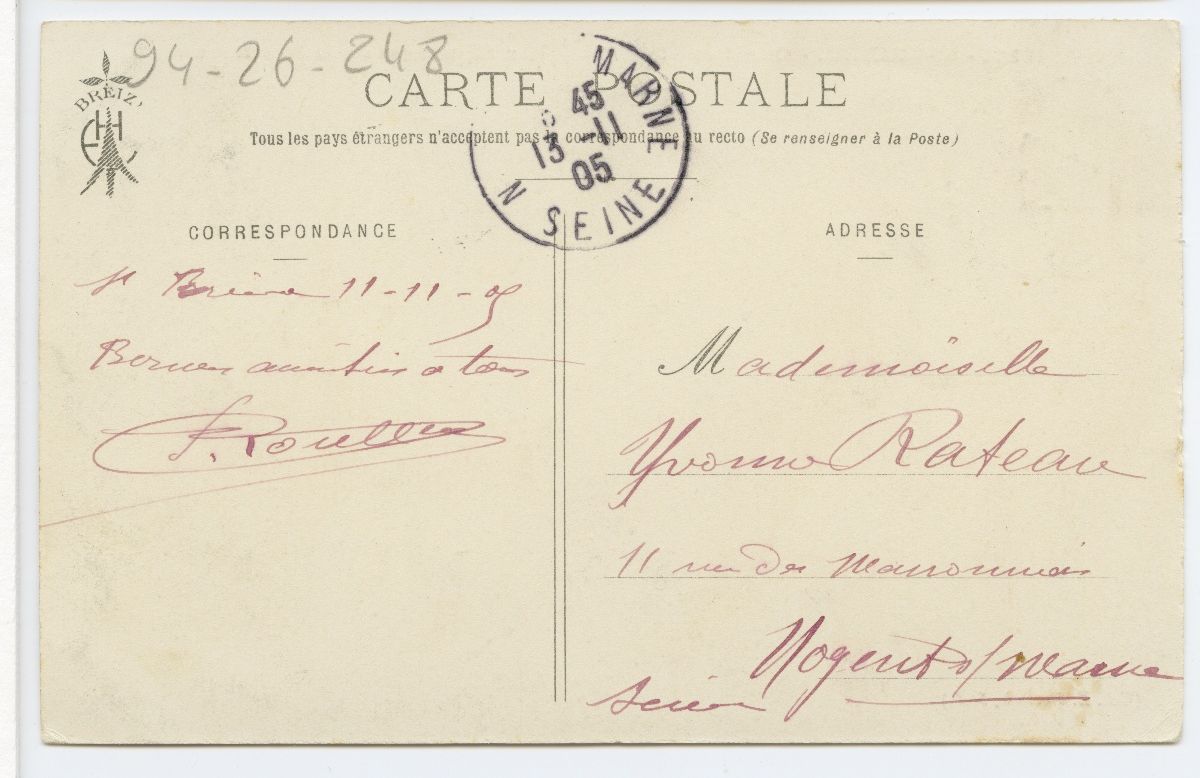 94-26-248
BREIZ'
CARTE POSTALE
Tous les pays étrangers n'acceptent pas la correspondance au recto (Se renseigner à la Poste)
MARNE
45
13 -11
05
N SEINE
CORRESPONDANCE
St Brieuc 11-11-05
a tous
ADRESSE
Mademoiselle
Yvonne Rateau
11 rue des Marronniers
Nogent s/ Marne
Seine